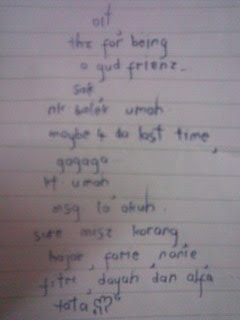 oit,
thx for being
a gud frienz..
sok,
nk balek umah.
maybe 4 da last time,
gagaga
kt umah
msg la akuh.
sure misz korang
hajar, farie, nanie
fitri, dayah, dan alfa,
tata